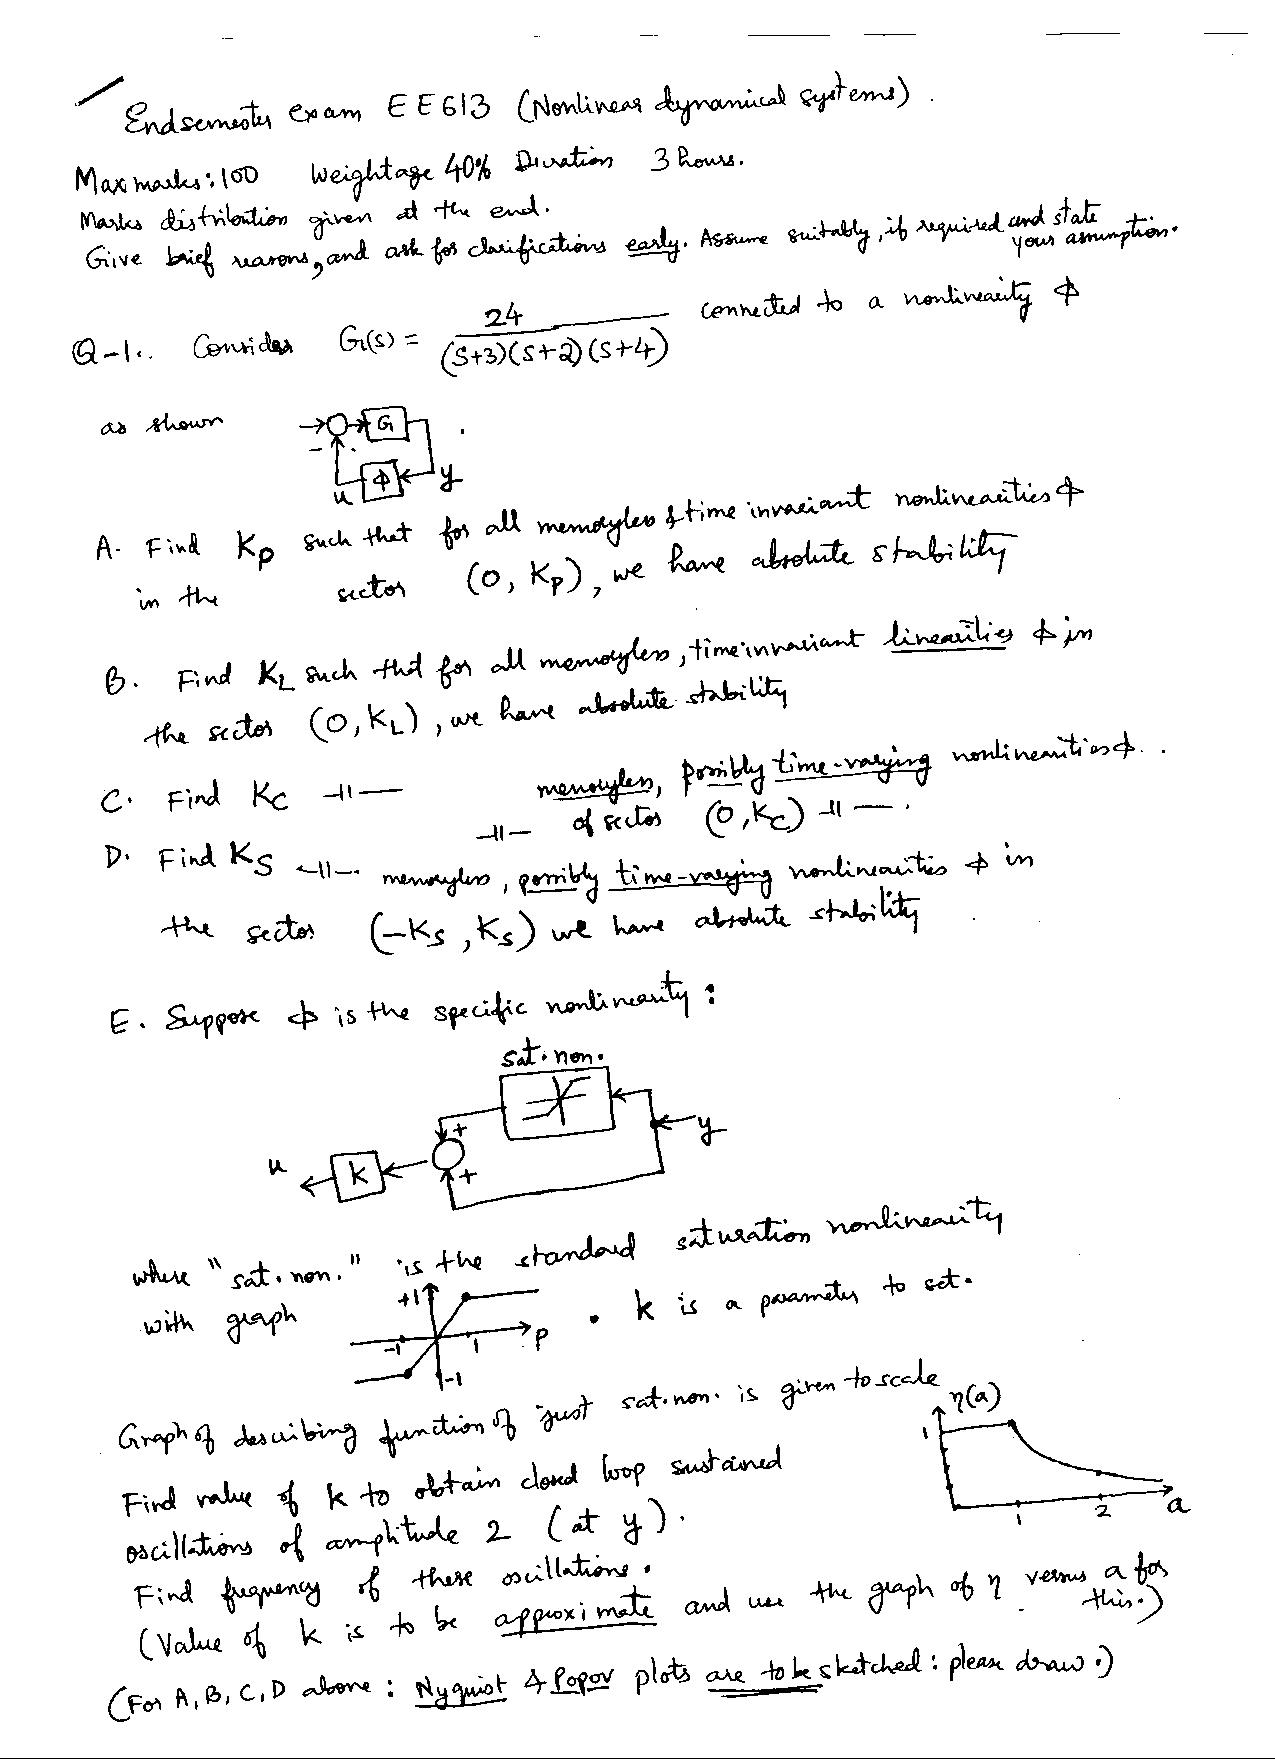 Endsemester exam EE613 (Nonlinear dynamical systems).
Max marks: 100 Weightage 40% Duration 3 hours.
Marks distribution given at the end.
Give brief reasons, and ask for clarifications early. Assume suitably, if required and state your assumption.
Q-1. Consider G(s) = 24 / (s+3)(s+2)(s+4) connected to a nonlinearity ϕ
as shown
G
-
ϕ
u y
A. Find Kp such that for all memoryless & time invariant nonlinearities ϕ
in the sector (0, Kp), we have absolute stability
B. Find KL such that for all memoryless, time invariant linearities ϕ in
the sector (0, KL), we have absolute stability
C. Find Kc -11- memoryless, possibly time-varying nonlinearities ϕ.
-11- of sector (0, Kc) -11-.
D. Find Ks -11-. memoryless, possibly time-varying nonlinearities ϕ in
the sector (-Ks, Ks) we have absolute stability
E. Suppose ϕ is the specific nonlinearity:
sat. non.
+
y
u
k
+
where "sat. non." is the standard saturation nonlinearity
with graph +1 -1 1 p -1 . k is a parameter to set.
Graph of describing function of just sat. non. is given to scale
η(a)
1
1 2 a
Find value of k to obtain closed loop sustained
oscillations of amplitude 2 (at y).
Find frequency of these oscillations.
(Value of k is to be approximate and use the graph of η versus a for this.)
(For A, B, C, D above: Nyquist & Popov plots are to be sketched: please draw.)